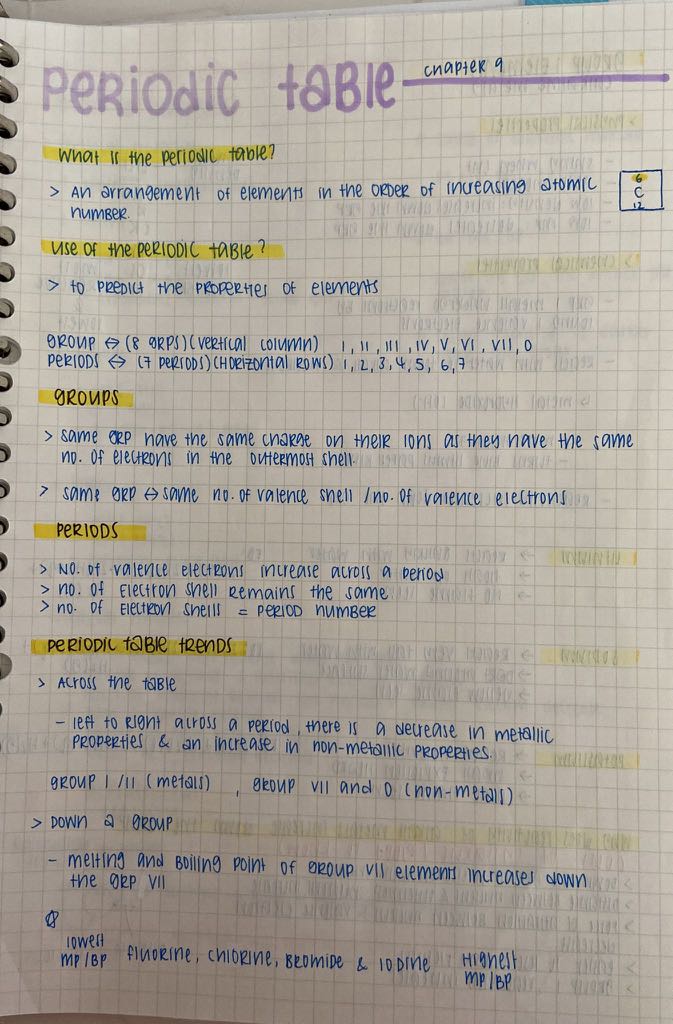 Periodic table
chapter 9
What is the periodic table?
> An arrangement of elements in the order of increasing atomic
number.
6
C
12
Use of the periodic table?
> to predict the properties of elements
group ↔ (8 grps) (vertical column) I, II, III, IV, V, VI, VII, 0
periods ↔ (7 periods) (horizontal rows) 1, 2, 3, 4, 5, 6, 7
groups
> same grp have the same charge on their ions as they have the same
no. of electrons in the outermost shell.
> same grp ↔ same no. of valence shell / no. of valence electrons
periods
> No. of valence electrons increase across a period
> no. of electron shell remains the same
> no. of electron shells = period number
periodic table trends
> Across the table
- left to right across a period, there is a decrease in metallic
properties & an increase in non-metallic properties.
group I / II (metals) , group VII and 0 (non-metals)
> down a group
- melting and boiling point of group VII elements increases down
the grp VII
lowest
mp/bp
fluorine, chlorine, bromide & iodine
highest
mp/bp